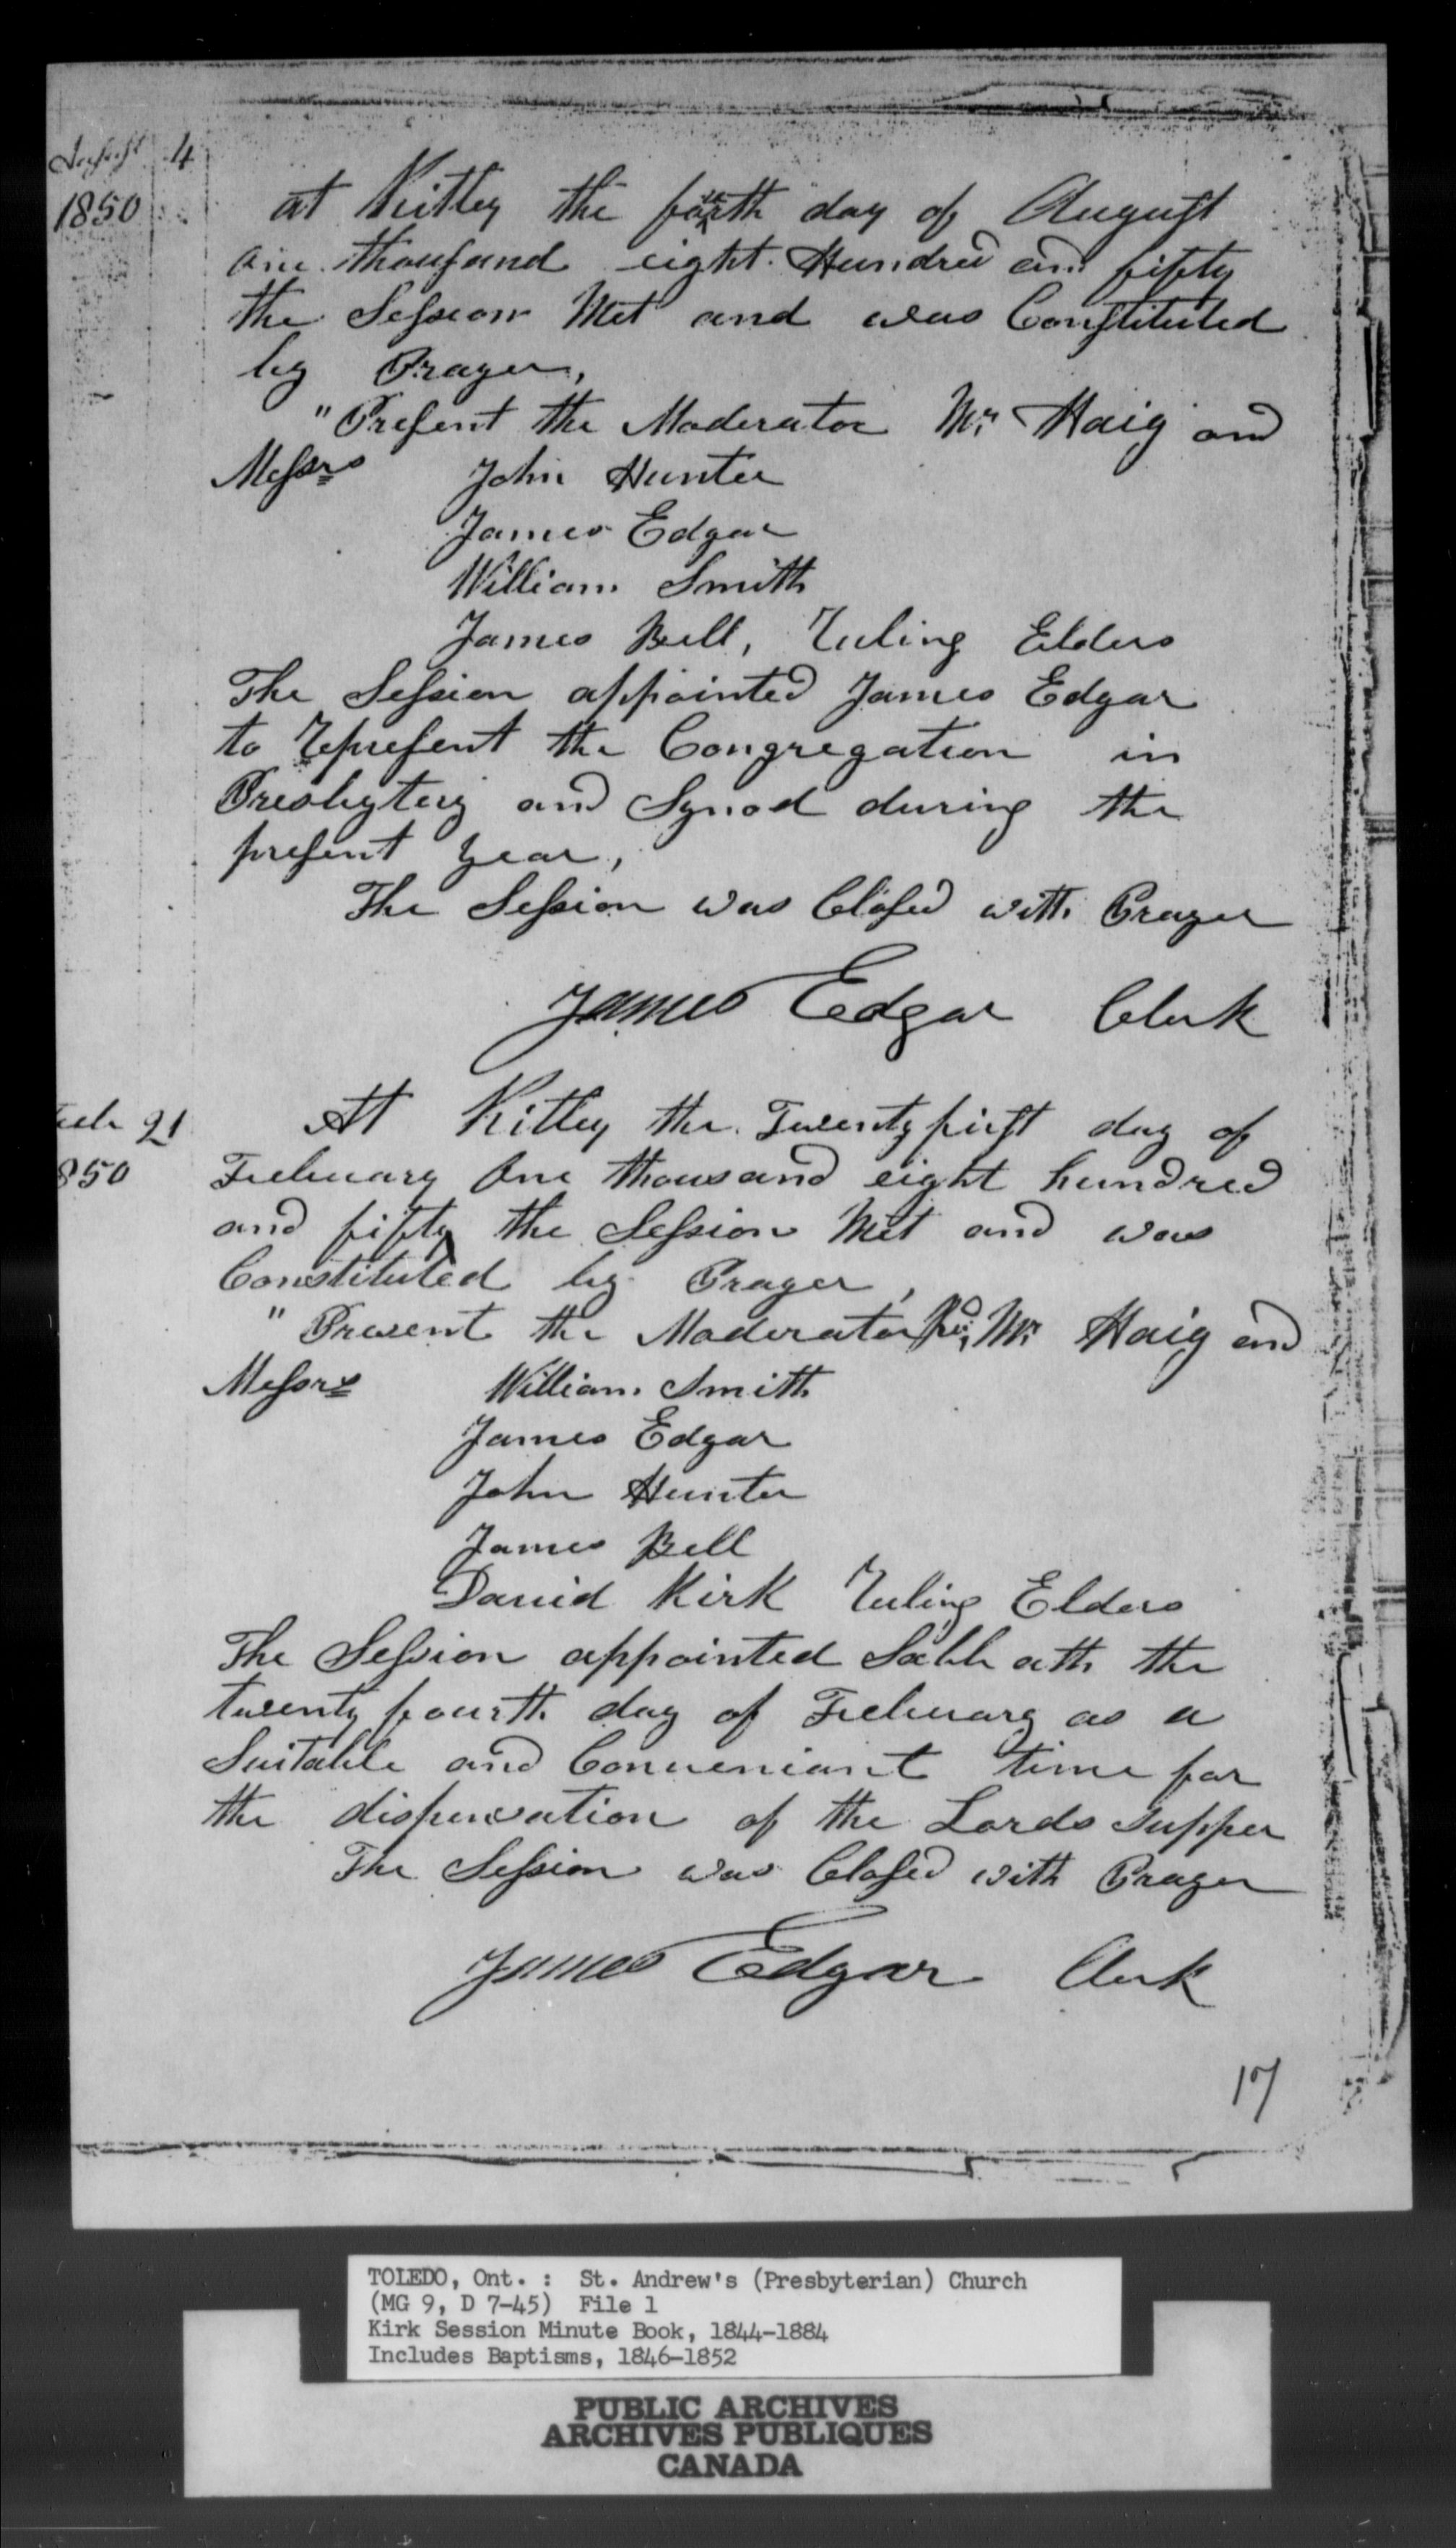 August 4
1850
at Kitley the fourth day of August
one thousand eight Hundred and fifty
the Session Met and was Constituted
by Prayer,
" Present the Moderator Mr. Haig and
Messrs John Hunter
James Edgar
William Smith
James Bell, ruling Elders
The Session appointed James Edgar
to represent the Congregation in
Presbytery and Synod during the
present year,
The Session was Closed with Prayer
James Edgar Clerk
Feb 21
850
At Kitley the Twenty first day of
February One thousand eight hundred
and fifty the Session Met and was
Constituted by Prayer,
" Present the Moderator Revd. Mr. Haig and
Messrs William Smith
James Edgar
John Hunter
James Bell
David Kirk ruling Elders
The Session appointed Sabbath the
twenty fourth day of February as a
Suitable and Conveniant time for
the dispensation of the Lords supper
The Session was Closed with Prayer
James Edgar Clerk
17
TOLEDO, Ont. : St. Andrew's (Presbyterian) Church
(MG 9, D 7-45) File 1
Kirk Session Minute Book, 1844-1884
Includes Baptisms, 1846-1852
PUBLIC ARCHIVES
ARCHIVES PUBLIQUES
CANADA